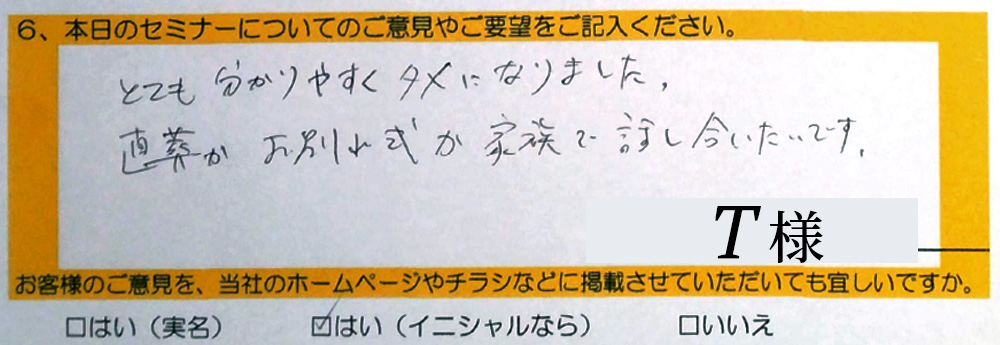 6、本日のセミナーについてのご意見やご要望をご記入ください。
とても分かりやすくタメになりました。
直葬かお別れ式か家族で話し合いたいです。
T様
お客様のご意見を、当社のホームページやチラシなどに掲載させていただいても宜しいですか。
□はい（実名） ☑はい（イニシャルなら） □いいえ